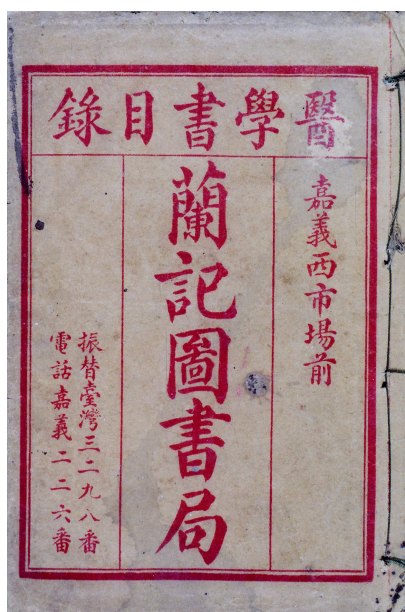 醫學書目錄
嘉義西市場前
蘭記圖書局
振替臺灣三二九八番
電話嘉義二二六番